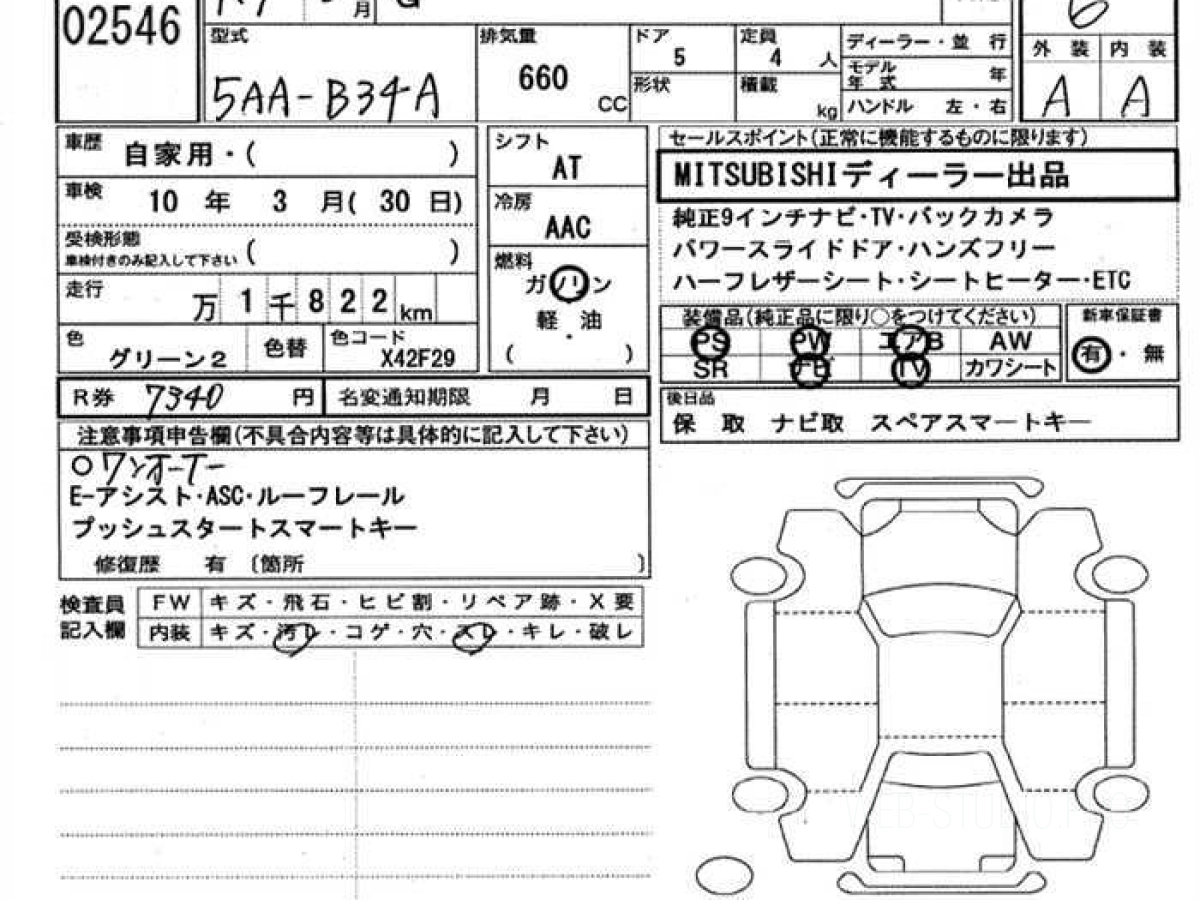 02546
月 G
6
型式
5AA-B34A
排気量
660
CC
ドア
5
定員
4 人
形状
積載
kg
ディーラー・並 行
モデル
年 式 年
ハンドル 左・右
外 装 内 装
A A
車歴 自家用・( )
車検 10 年 3 月( 30 日)
受検形態
車検付きのみ記入して下さい ( )
走行 万 1 千 8 2 2 km
色 グリーン2 色替 色コード X42F29
シフト
AT
冷房
AAC
燃料
ガソリン
軽・油
( )
セールスポイント(正常に機能するものに限ります)
MITSUBISHIディーラー出品
純正9インチナビ・TV・バックカメラ
パワースライドドア・ハンズフリー
ハーフレザーシート・シートヒーター・ETC
装備品(純正品に限り○をつけてください)
PS PW エアB AW
SR ナビ TV カワシート
新車保証書
有・無
R券 7340 円 名変通知期限 月 日
後日品
保 取 ナビ取 スペアスマートキー
注意事項申告欄(不具合内容等は具体的に記入して下さい)
○ワンオーナー
E-アシスト・ASC・ルーフレール
プッシュスタートスマートキー
修復歴 有 〔箇所 〕
検査員
記入欄
FW キズ・飛石・ヒビ割・リペア跡・X要
内装 キズ・汚レ・コゲ・穴・スレ・キレ・破レ